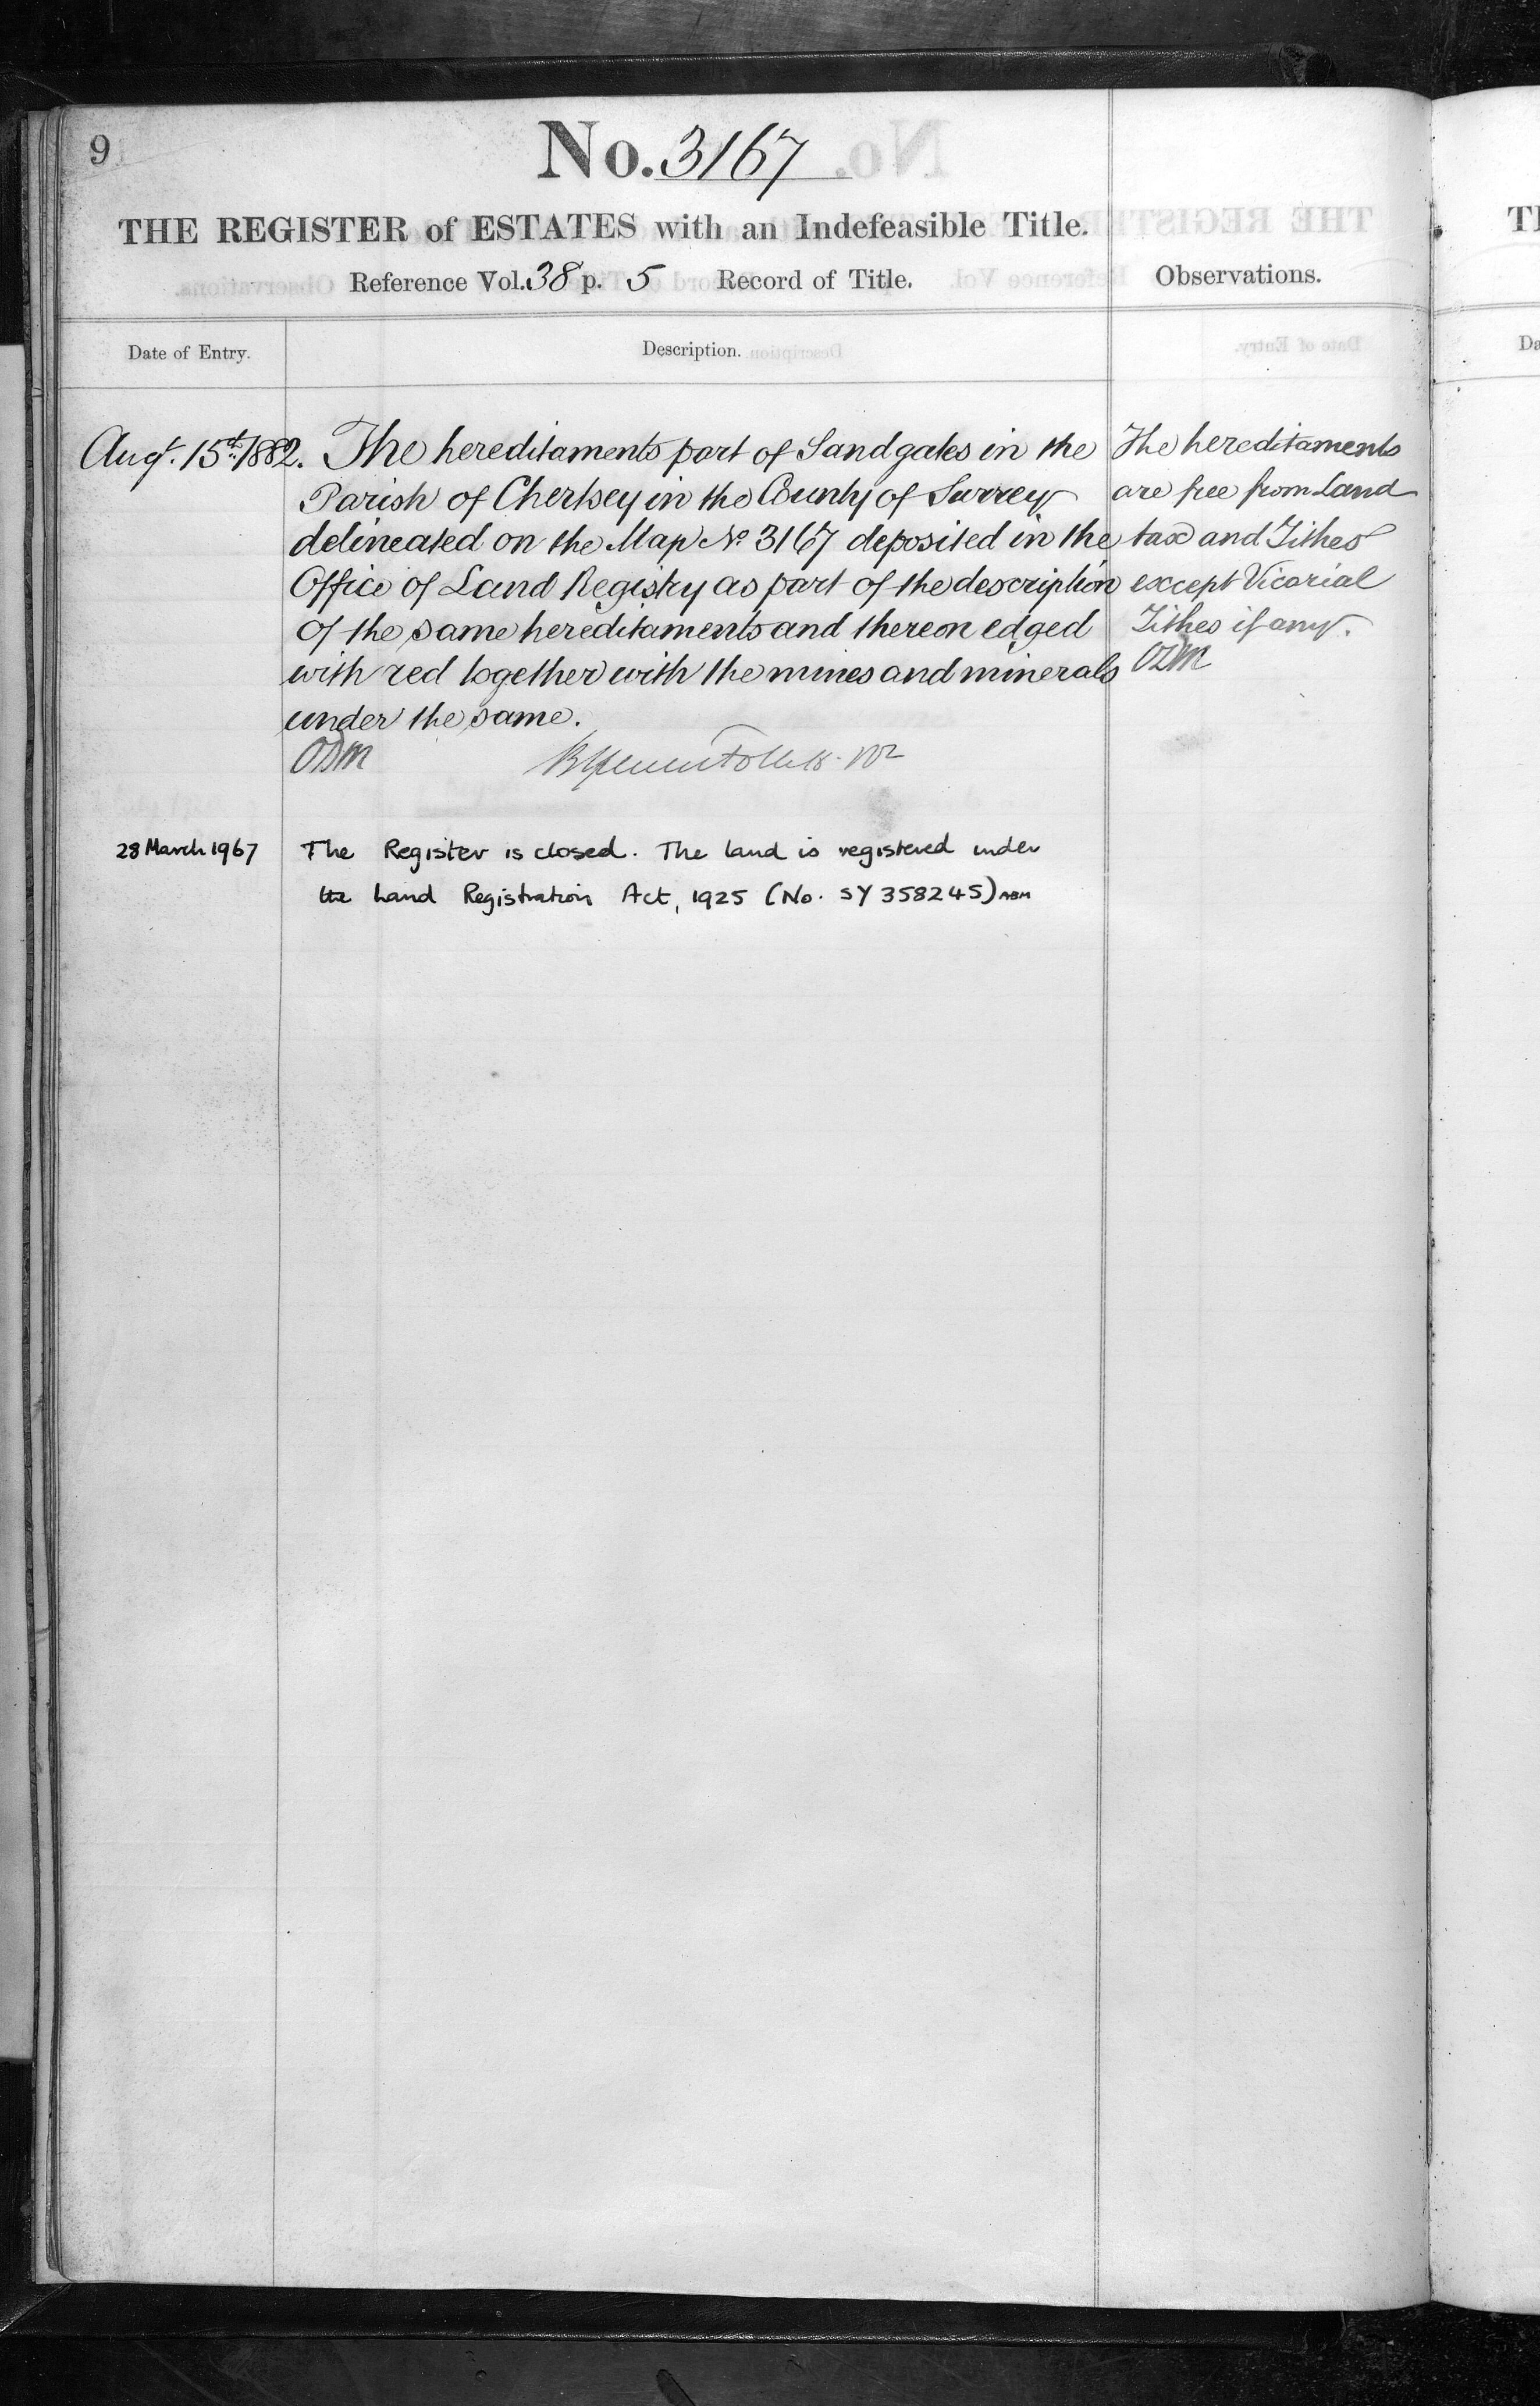 9
No. 3167
THE REGISTER of ESTATES with an Indefeasible Title.
Reference Vol. 38 p. 5 Record of Title.
Observations.
Date of Entry.
Description.
Augt. 15th 1882.
The hereditaments part of Sandgates in the
Parish of Chertsey in the County of Surrey
delineated on the Map No 3167 deposited in the
Office of Land Registry as part of the description
of the same hereditaments and thereon edged
with red together with the mines and minerals
under the same.
ODM
The hereditaments
are free from Land
tax and Tithes
except Vicarial
Tithes if any.
ODM
28 March 1967
The Register is closed. The land is registered under
the Land Registration Act, 1925 (No. SY 358245) ABM